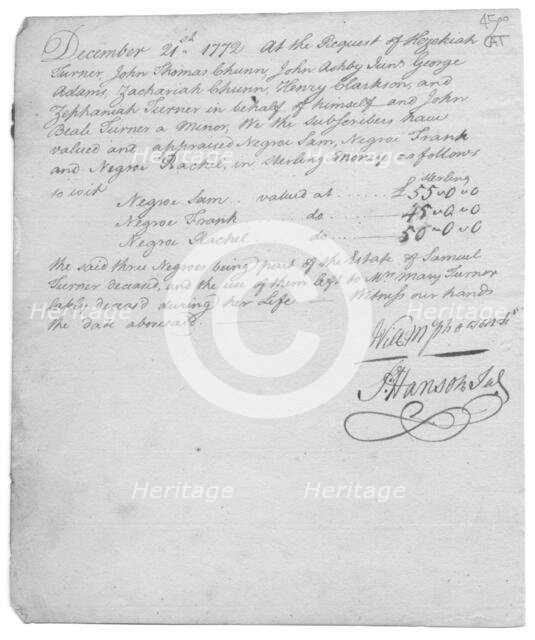 4500
CAT
December 21st. 1772. At the Request of Hezekiah
Turner, John Thomas Chunn, John Ashby Junr. George
Adams, Zachariah Chunn, Henry Clarkson, and
Zephaniah Turner in behalf of himself and John
Beale Turner a Minor, We the Subscribers have
valued and appraised Negroe Sam, Negroe Frank
and Negroe Rachel, in sterling money as follows
to wit
Sterling
Negroe Sam.. valued at ....... £55"0"0
Negroe Frank ...... do ...... 45"0"0
Negroe Rachel ...... do ...... 50"0"0
the said three Negroes being part of the Estate of Samuel
Turner deceased, and the use of them left to Mrs. Mary Turner
lately deceased during her Life. Witness our hands
the date abovesaid.
Hanson
Heritage
Heritage
Heritage
Heritage
Heritage
Heritage